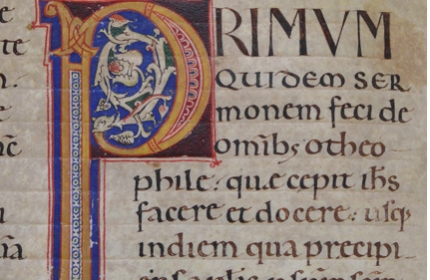 PRIMUM
QUIDEM SER
monem feci de
omĩbꝫ o theo
phile: quę cepit ihs
facere et docere: usq;
in diem qua precipi